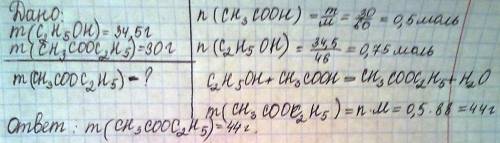 Дано:
m(C₂H₅OH)=34,5г
m(CH₃COOC₂H₅)=30г
m(CH₃COOC₂H₅)-?
n(CH₃COOH)=m/M=30/60=0,5моль
n(C₂H₅OH)=34,5/46=0,75моль
C₂H₅OH+CH₃COOH=CH₃COOC₂H₅+H₂O
m(CH₃COOC₂H₅)=n·M=0,5·88=44г
Ответ: m(CH₃COOC₂H₅)=44г.